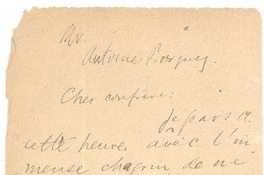 Mr.
Antoine Bosquez.
Cher confrère:
Je pars à
cette heures avèc l'im
mense chagrin de ne